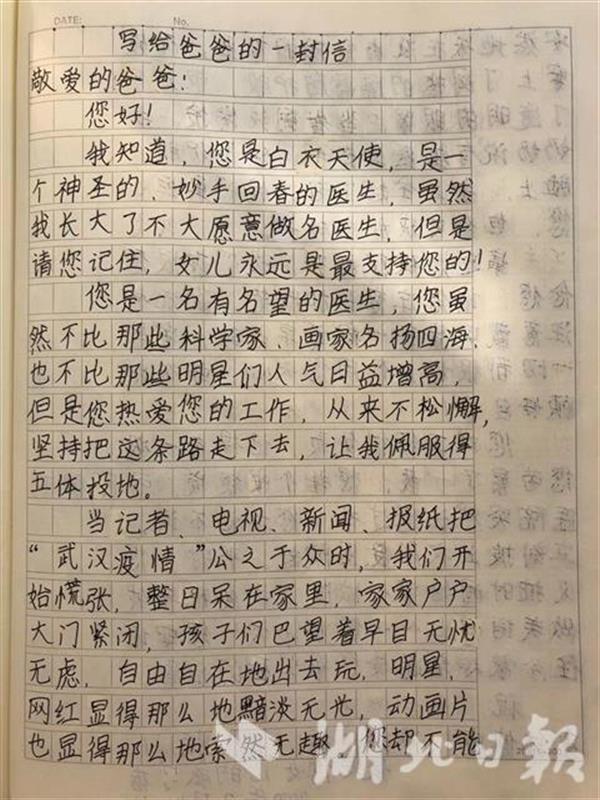 DATE:
No.
写给爸爸的一封信
敬爱的爸爸：
您好！
我知道，您是白衣天使，是一
个神圣的、妙手回春的医生，虽然
我长大了不大愿意做名医生，但是
请您记住，女儿永远是最支持您的！
您是一名有名望的医生，您虽
然不比那些科学家、画家名扬四海，
也不比那些明星们人气日益增高，
但是您热爱您的工作，从来不松懈，
坚持把这条路走下去，让我佩服得
五体投地。
当记者、电视、新闻、报纸把
“武汉疫情”公之于众时，我们开
始慌张，整日呆在家里，家家户户
大门紧闭，孩子们巴望着早日无忧
无虑，自由自在地出去玩，明星，
网红显得那么地黯淡无光，动画片
也显得那么地索然无趣，您却不能
湖北日报